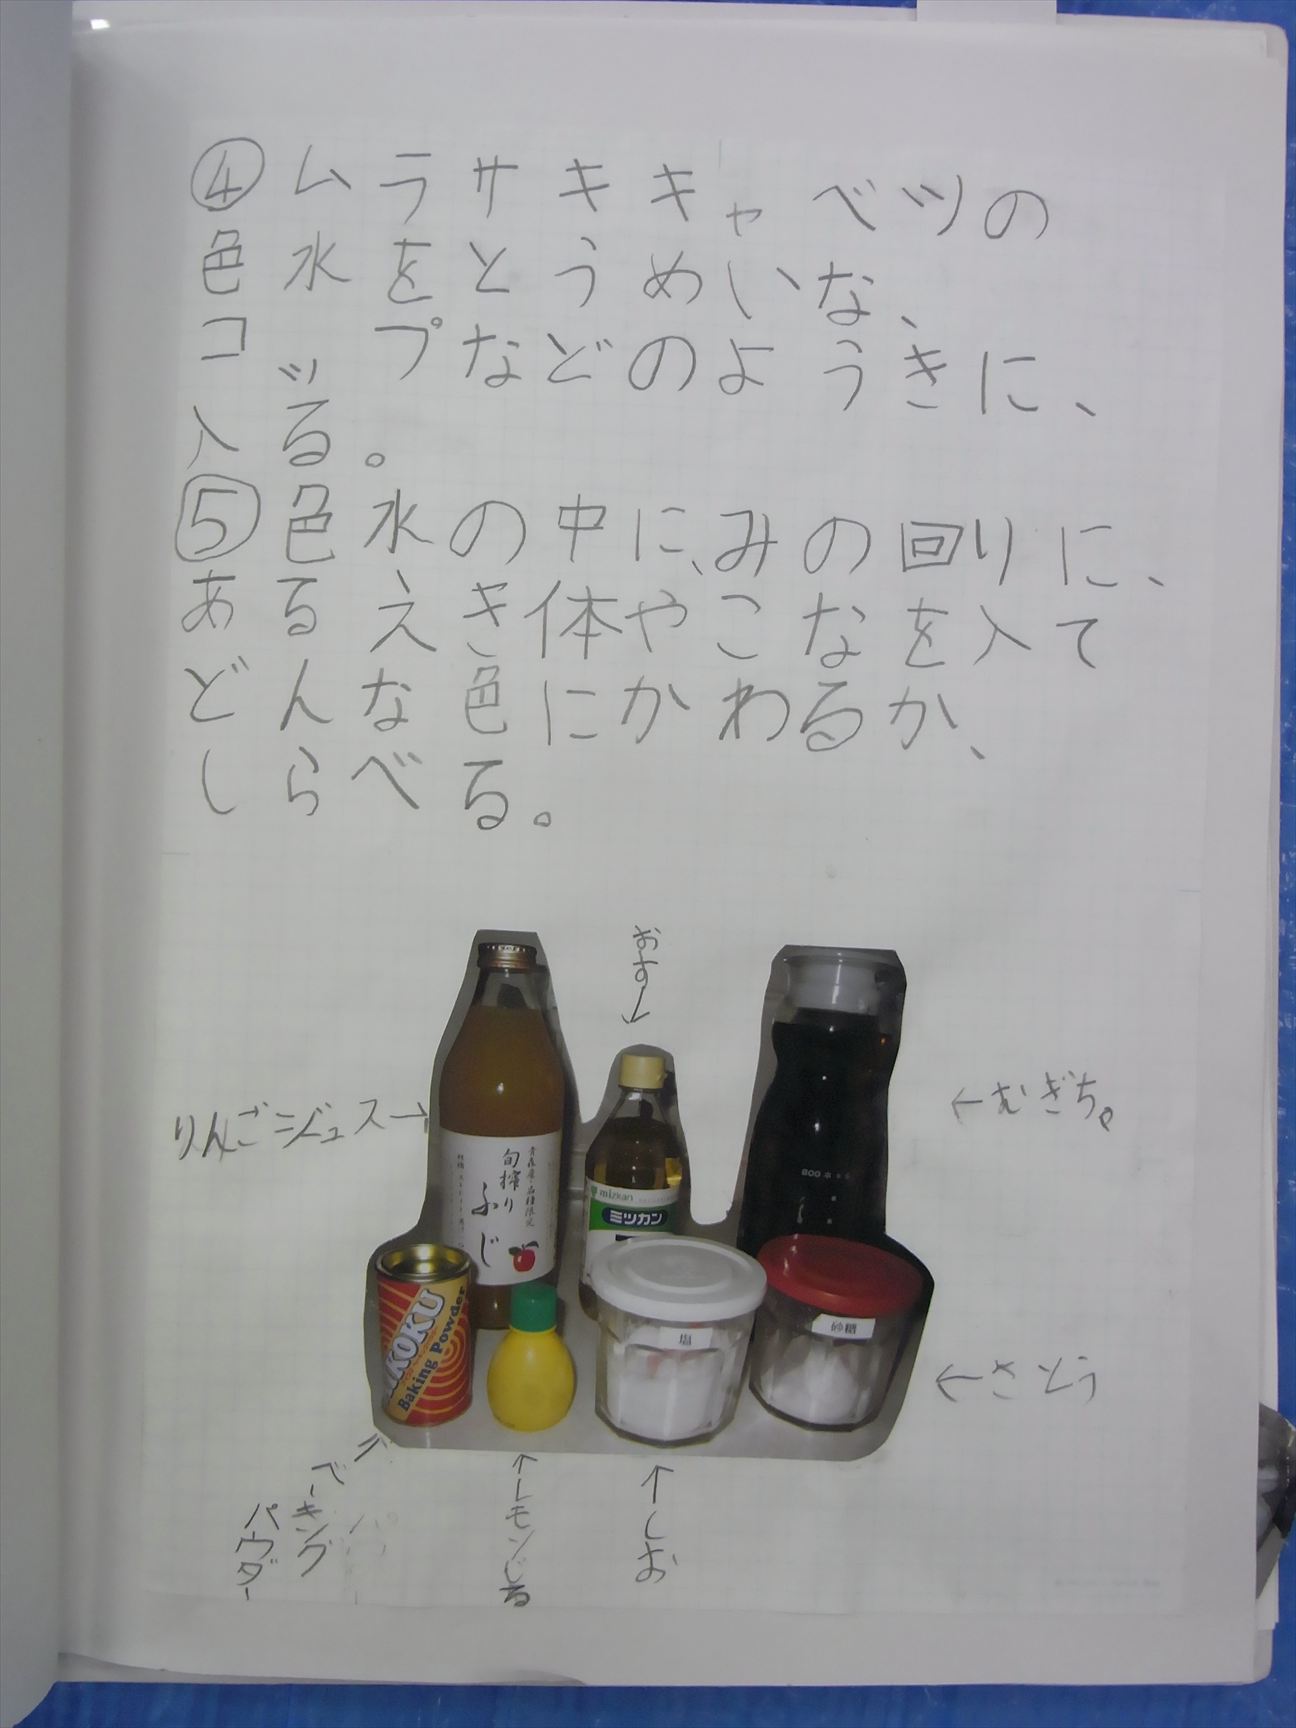 ④ムラサキキャベツの
色水をとうめいな、
コップなどのようきに、
入る。
⑤色水の中に、みの回りに、
あるえき体やこなを入て
どんな色にかわるか、
しらべる。
おす↓
りんごジュース→
←むぎち。
青森産・品種限定
旬搾り
ふじ
mizkan
ミツカン
800
KOKU
Baking Powder
塩
砂糖
←さとう
ベーキング
パウダー
↑レモンじる
↑しお